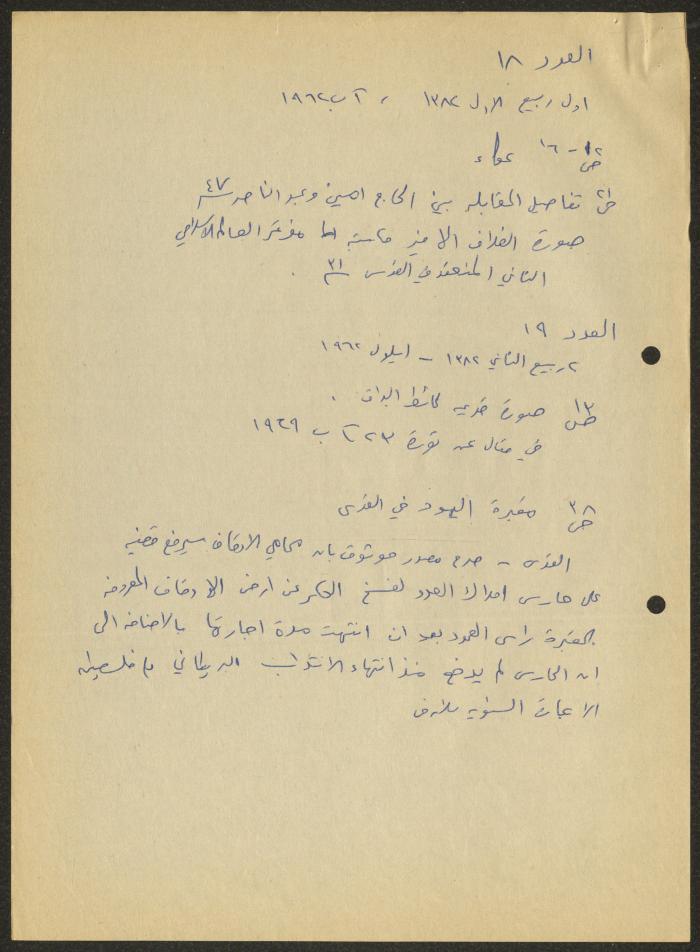 العدد ١٨
اول ربيع الاول ١٣٨٢ ، آب ١٩٦٢
ص ١٢ - ١٦
ص ٢ تفاصيل المقابلة بين الحاج امين وعبد الناصر ٤٧
صورة الغلاف الاخير مؤتمر العالم الاسلامي
الثاني المنعقد في القدس ٣١ .
العدد ١٩
٢ ربيع الثاني ١٣٨٢ - ايلول ١٩٦٢
ص ١٣ صورة قديمة لحائط البراق .
في مقال عن ثورة ٢٣ آب ١٩٢٩
ص ٣٨ مقبرة اليهود في القدس
القدس - صرح مصدر موثوق بان محامي الاوقاف سيرفع قضية
على حارس املاك العدو لفسخ الحكر عن ارض الاوقاف المعروفة
بمقبرة راس العمود بعد ان انتهت مدة اجارتها بالاضافة الى
ان الحارس لم يدفع منذ انتهاء الانتداب البريطاني على فلسطين
الاجارة السنوية للاوقاف